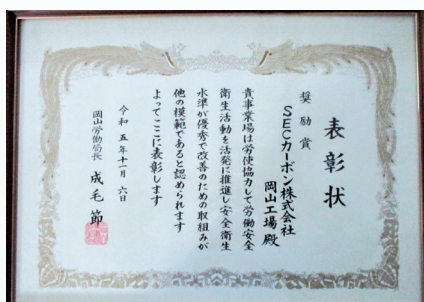 表彰状
奨励賞
SECカーボン株式会社
岡山工場殿
貴事業場は労使協力して労働安全
衛生活動を活発に推進し安全衛生
水準が優秀で改善のための取組みが
他の模範であると認められます
よってここに表彰します
令和五年十一月六日
岡山労働局長 成毛節